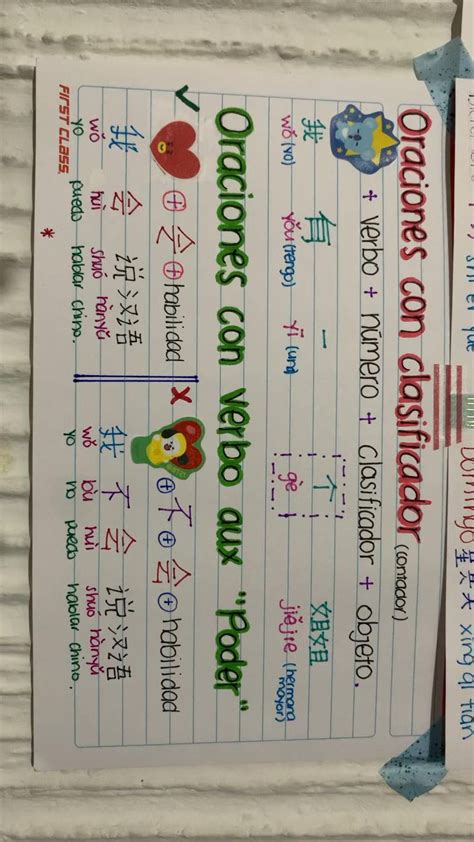 Oraciones con clasificador (contador)
+ verbo + número + clasificador + objeto.
我 有 一 个 姐姐
wǒ (yo) yǒu (tengo) yī (una) gè jiějie (hermana mayor)
Oraciones con verbo aux "Poder"
✓ + 会 + habilidad
x + 不 + 会 + habilidad
我 会 说 汉语
wǒ huì shuō hànyǔ
yo puedo hablar chino.
我 不 会 说 汉语
wǒ bù huì shuō hànyǔ
yo no puedo hablar chino.
FIRST CLASS.
*
que
Domingo 星期天 xīng qī tiān